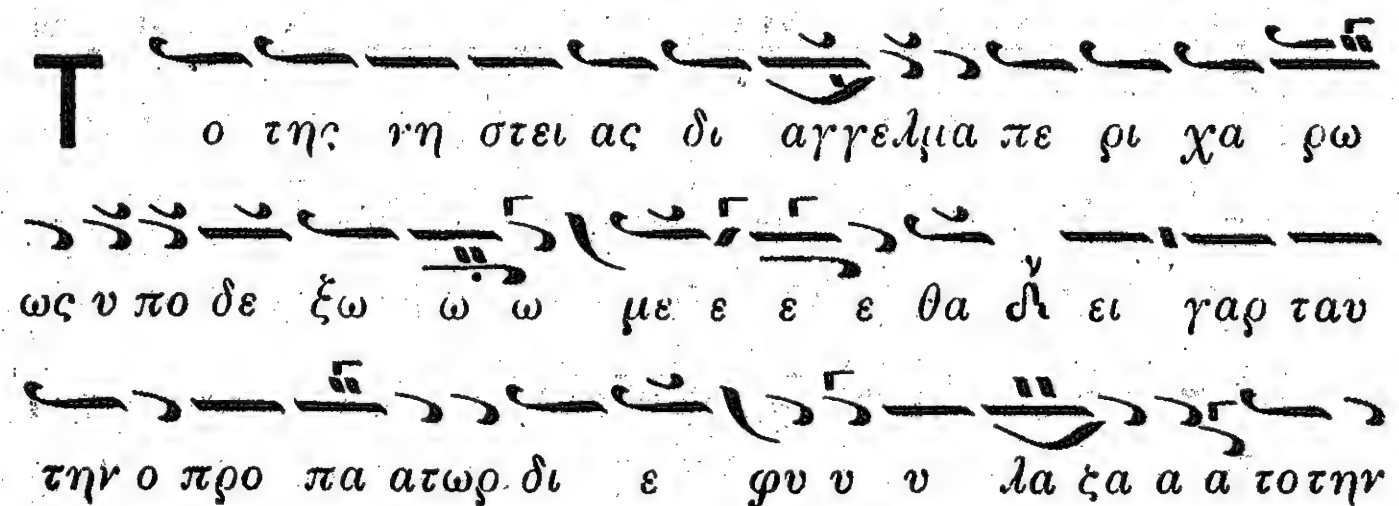 Τ ο της νη στει ας δι αγγελμα πε ρι χα ρω
ως υ πο δε ξω ω ω με ε ε ε θα ει γαρ ταυ
την ο προ πα ατωρ δι ε φυ υ υ λα ζα α α το την